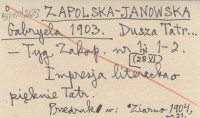 ZAPOLSKA-JANOWSKA
Gabryela 1903. Dusza Tatr...
— Tyg. Zakop. nr. 1 s. 1-2.
(28 VI)
Impresja literacka o
pięknie Tatr.
Przedruk w: "Ziarno" 1904,